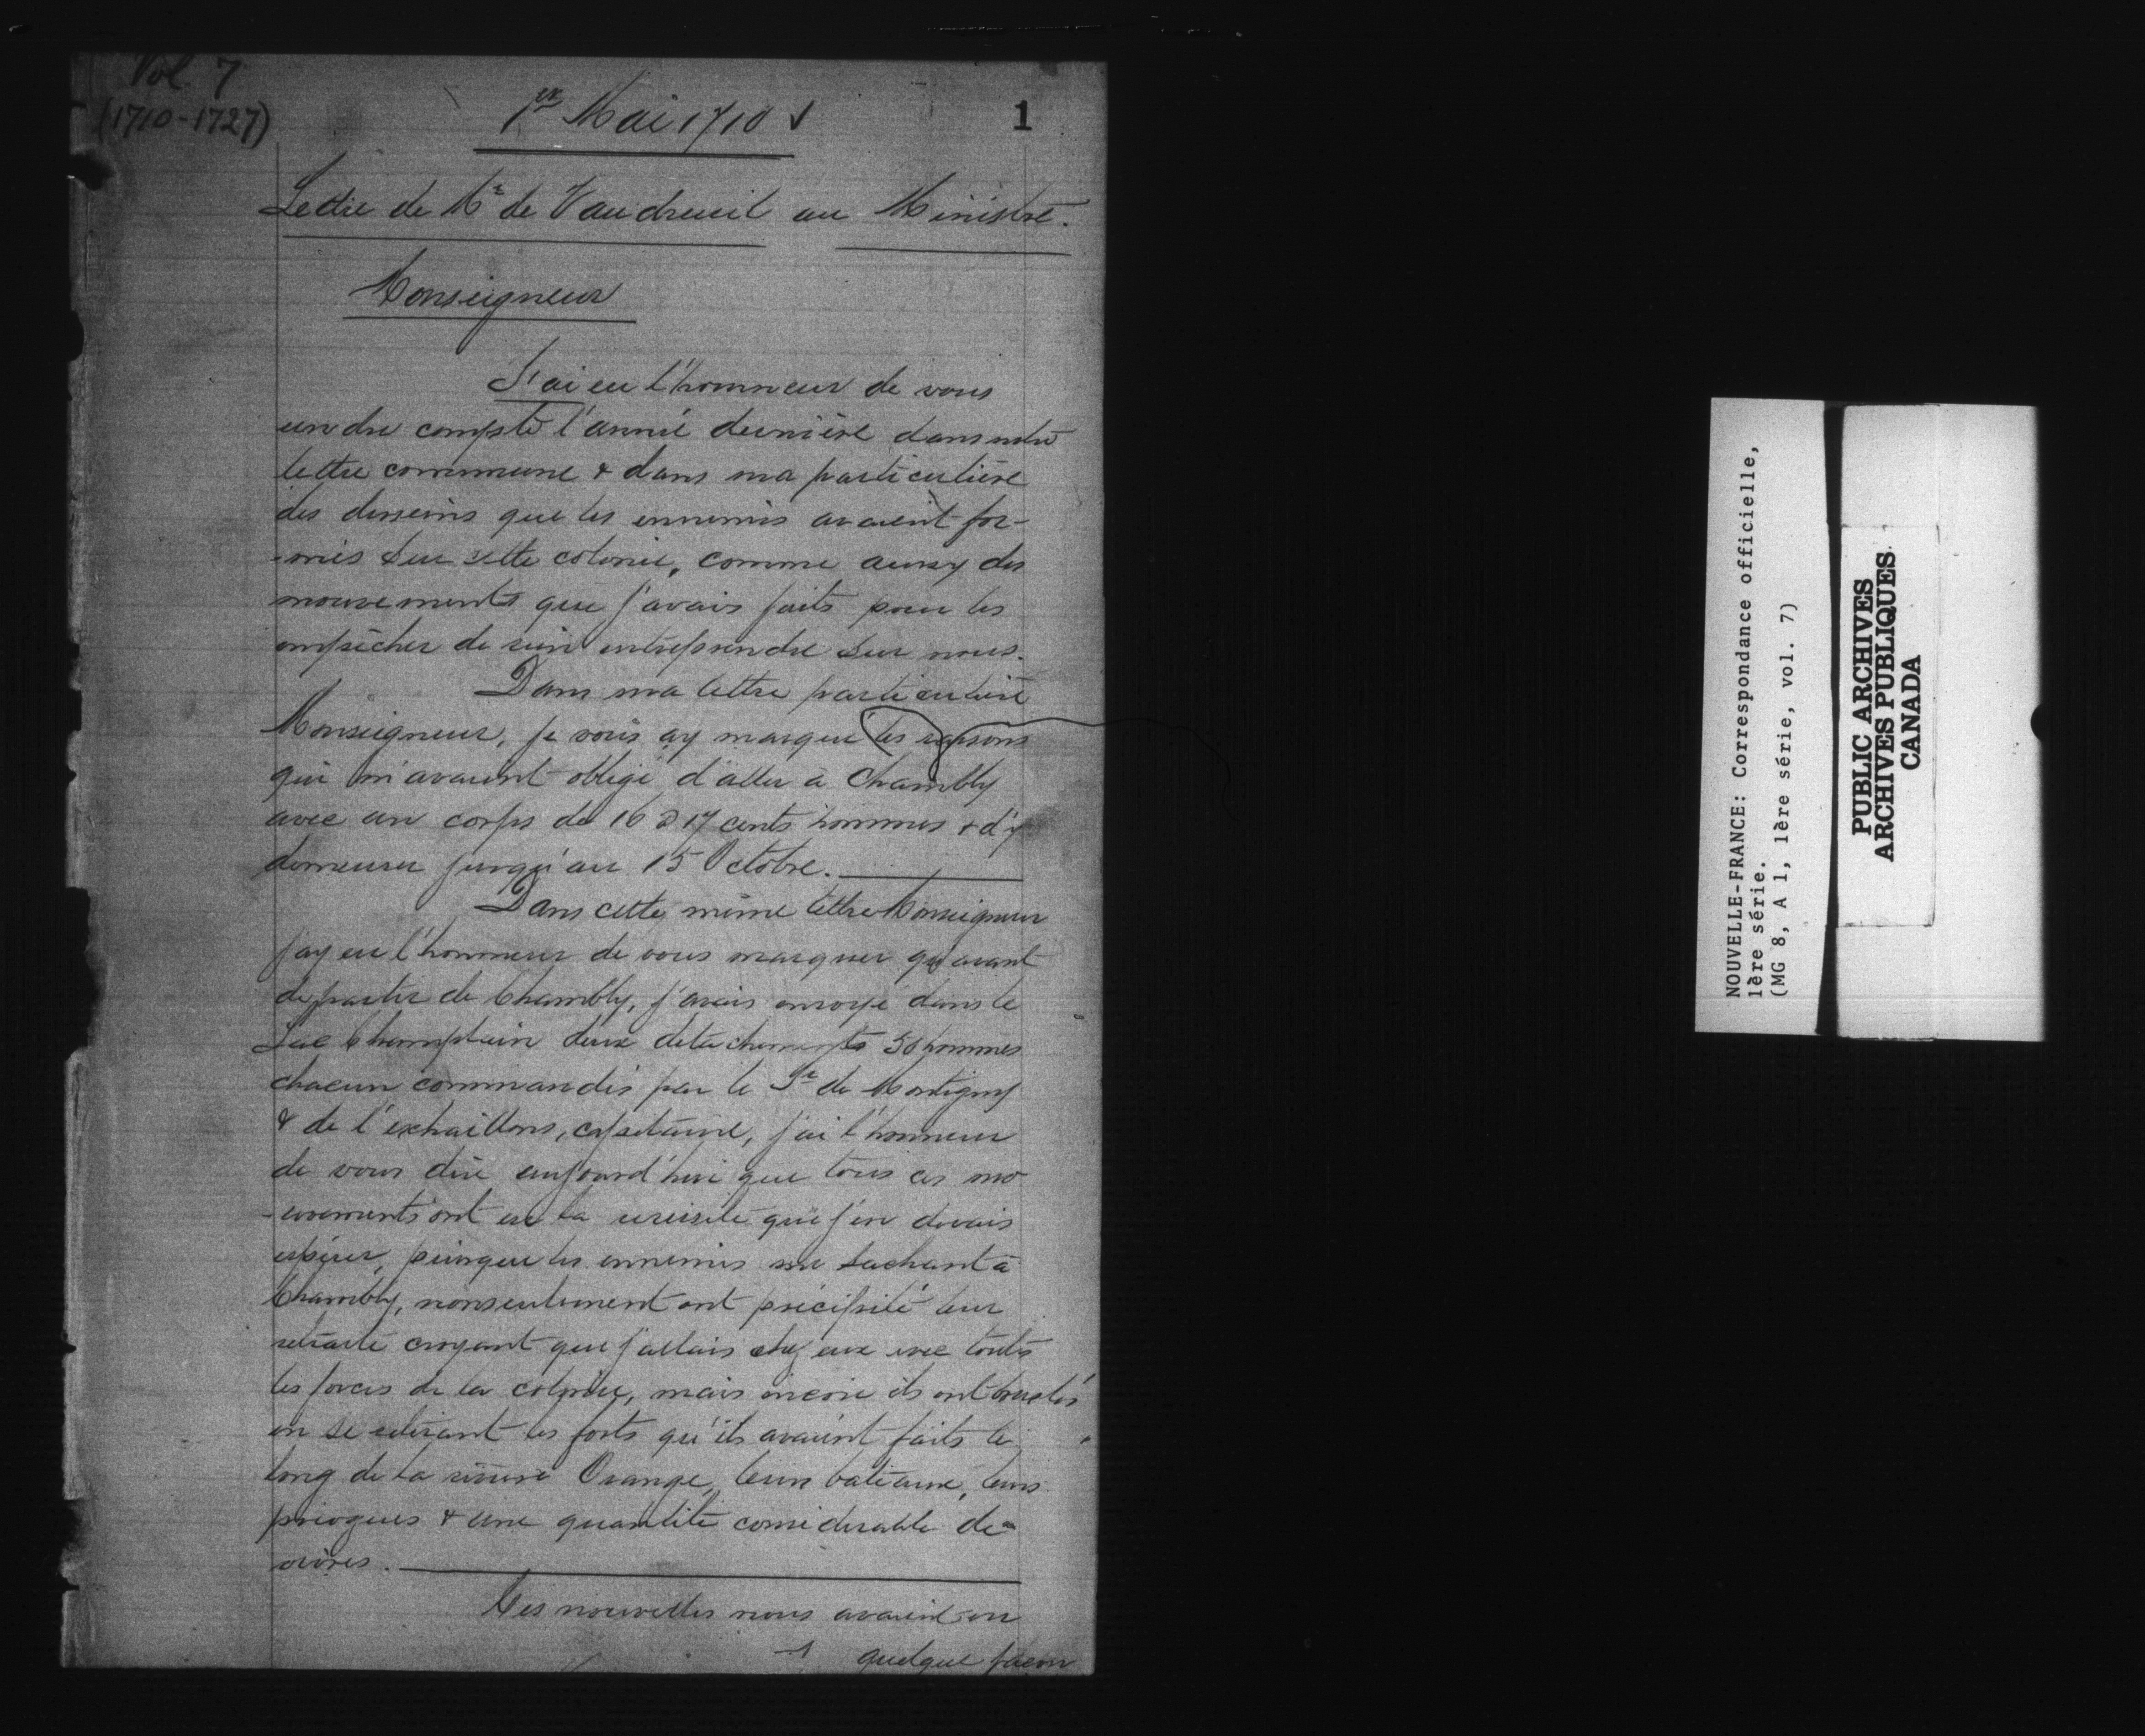 Vol. 7
(1710-1727)
1er Mai 1710
1
Lettre de Mr de Vaudreuil au Ministre.
Monseigneur
J'ai eu l'honneur de vous
rendre compte l'année dernière dans notre
lettre commune & dans ma particulière
des desseins que les ennemis avaient for-
-més sur cette colonie, comme aussy des
mouvements que j'avais faits pour les
empêcher de rien entreprendre sur nous.
Dans ma lettre particulière
Monseigneur, je vous ay marqué les raisons
qui m'avaient obligé d'aller à Chambly
avec un corps de 16 à 17 cents hommes & d'y
demeurer jusqu'au 15 Octobre.
Dans cette même lettre Monseigneur
j'ay eu l'honneur de vous marquer qu'avant
de partir de Chambly, j'avais envoyé dans le
Lac Champlain deux détachements 50 hommes
chacun commandés par le Sr de Montigny
& de l'exhaillons, capitaine, j'ai l'honneur
de vous dire aujourd'hui que tous ces mo
-uvements ont eu la réussite que j'en devais
espérer, puisque les ennemis me sachant à
Chambly, nonseulement ont précipité leur
retraite croyant que j'allais chez eux avec toutes
les forces de la colonie, mais encore ils ont bruslés
en se retirant les forts qu'ils avaient faits le
long de la rivière Orange, leurs bateaux, leurs
pirogues & une quantité considérable de
vivres.
Ces nouvelles nous avaient en
quelque façon
NOUVELLE-FRANCE: Correspondance officielle,
1ère série.
(MG 8, A 1, 1ère série, vol. 7)
PUBLIC ARCHIVES
ARCHIVES PUBLIQUES
CANADA